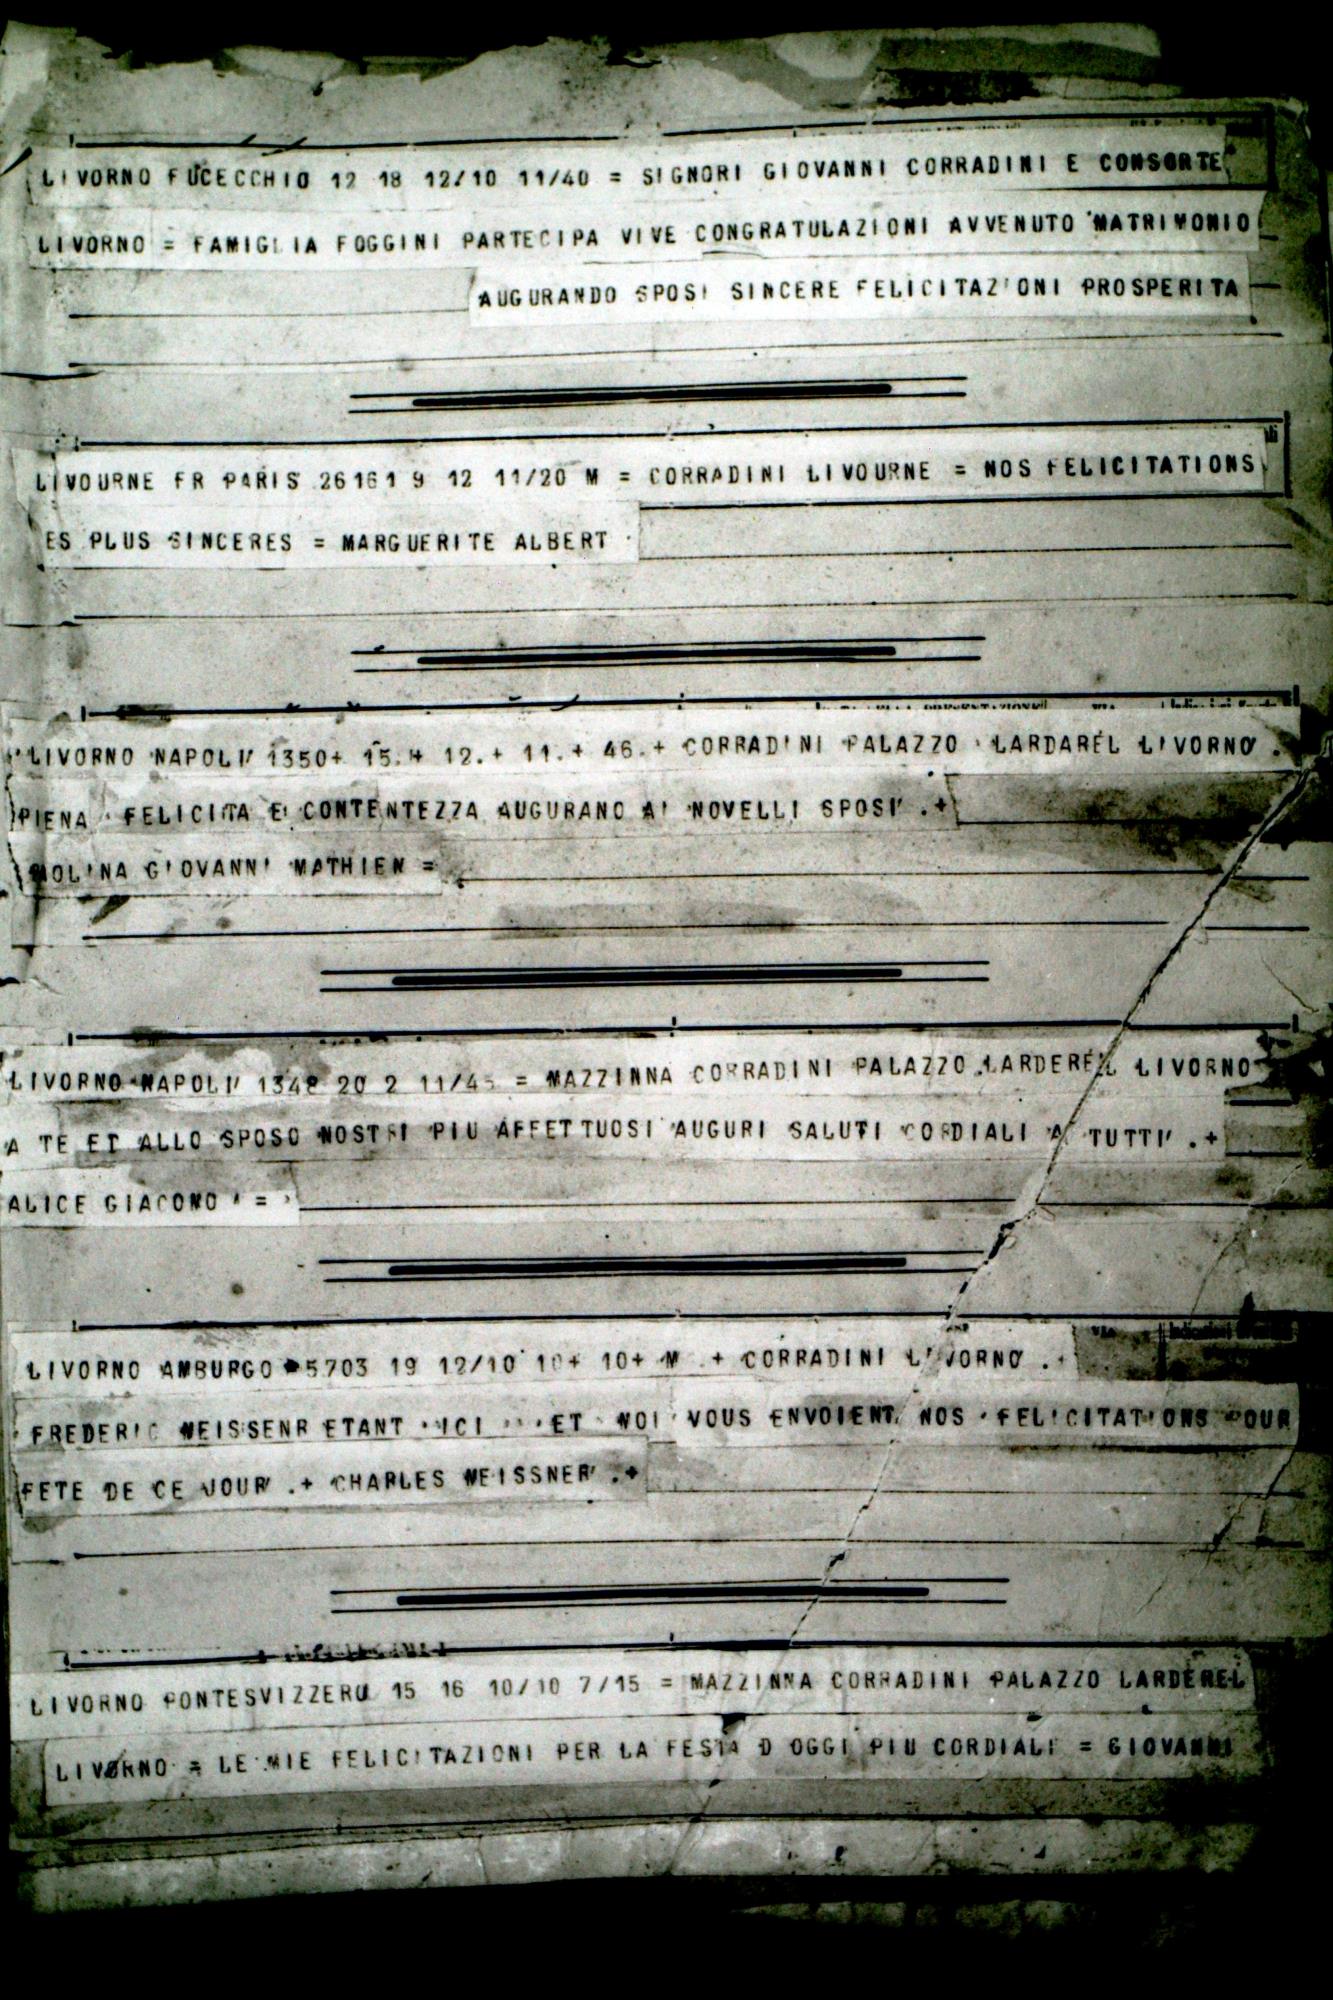 LIVORNO FUCECCHIO 12 18 12/10 11/40 = SIGNORI GIOVANNI CORRADINI E CONSORTE
LIVORNO = FAMIGLIA FOGGINI PARTECIPA VIVE CONGRATULAZIONI AVVENUTO MATRIMONIO
AUGURANDO SPOSI SINCERE FELICITAZIONI PROSPERITA
LIVOURNE FR PARIS 26161 9 12 11/20 M = CORRADINI LIVOURNE = NOS FELICITATIONS
ES PLUS SINCERES = MARGUERITE ALBERT
LIVORNO NAPOLI 1350+ 15.+ 12.+ 11.+ 46.+ CORRADINI PALAZZO LARDAREL LIVORNO .
PIENA FELICITA E CONTENTEZZA AUGURANO AI NOVELLI SPOSI .+
MOLINA GIOVANNI MATHIEN =
LIVORNO NAPOLI 1348 20 2 11/45 = MAZZINNA CORRADINI PALAZZO LARDEREL LIVORNO
A TE ET ALLO SPOSO NOSTRI PIU AFFETTUOSI AUGURI SALUTI CORDIALI A TUTTI .+
ALICE GIACOMO =
LIVORNO AMBURGO 5703 19 12/10 10+ 10+ M .+ CORRADINI LIVORNO .
FREDERIC WEISSENR ETANT ICI ET NOI VOUS ENVOIENT NOS FELICITATIONS POUR
FETE DE CE JOUR .+ CHARLES WEISSNER .+
LIVORNO PONTESVIZZERO 15 16 10/10 7/15 = MAZZINNA CORRADINI PALAZZO LARDEREL
LIVORNO = LE MIE FELICITAZIONI PER LA FESTA D OGGI PIU CORDIALI = GIOVANNI